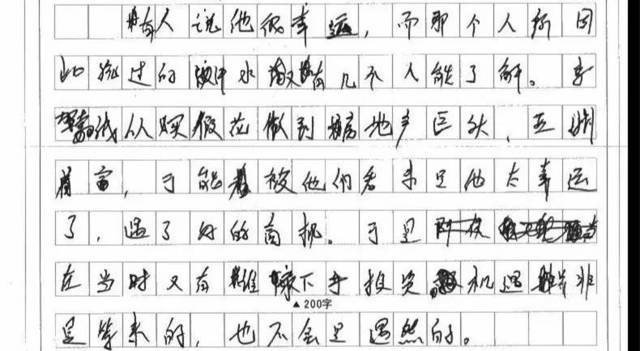 有人说他很幸运，而那个人所因
此流过的汗水又有几个人能了解。李
嘉诚从买假花做到搞地产巨头，亚洲
首富，可能被他们看来是他太幸运
了，遇了好的商机。可是
在当时又有谁敢下手投资，机遇并非
▲200字
是等来的，也不会是遇然的。